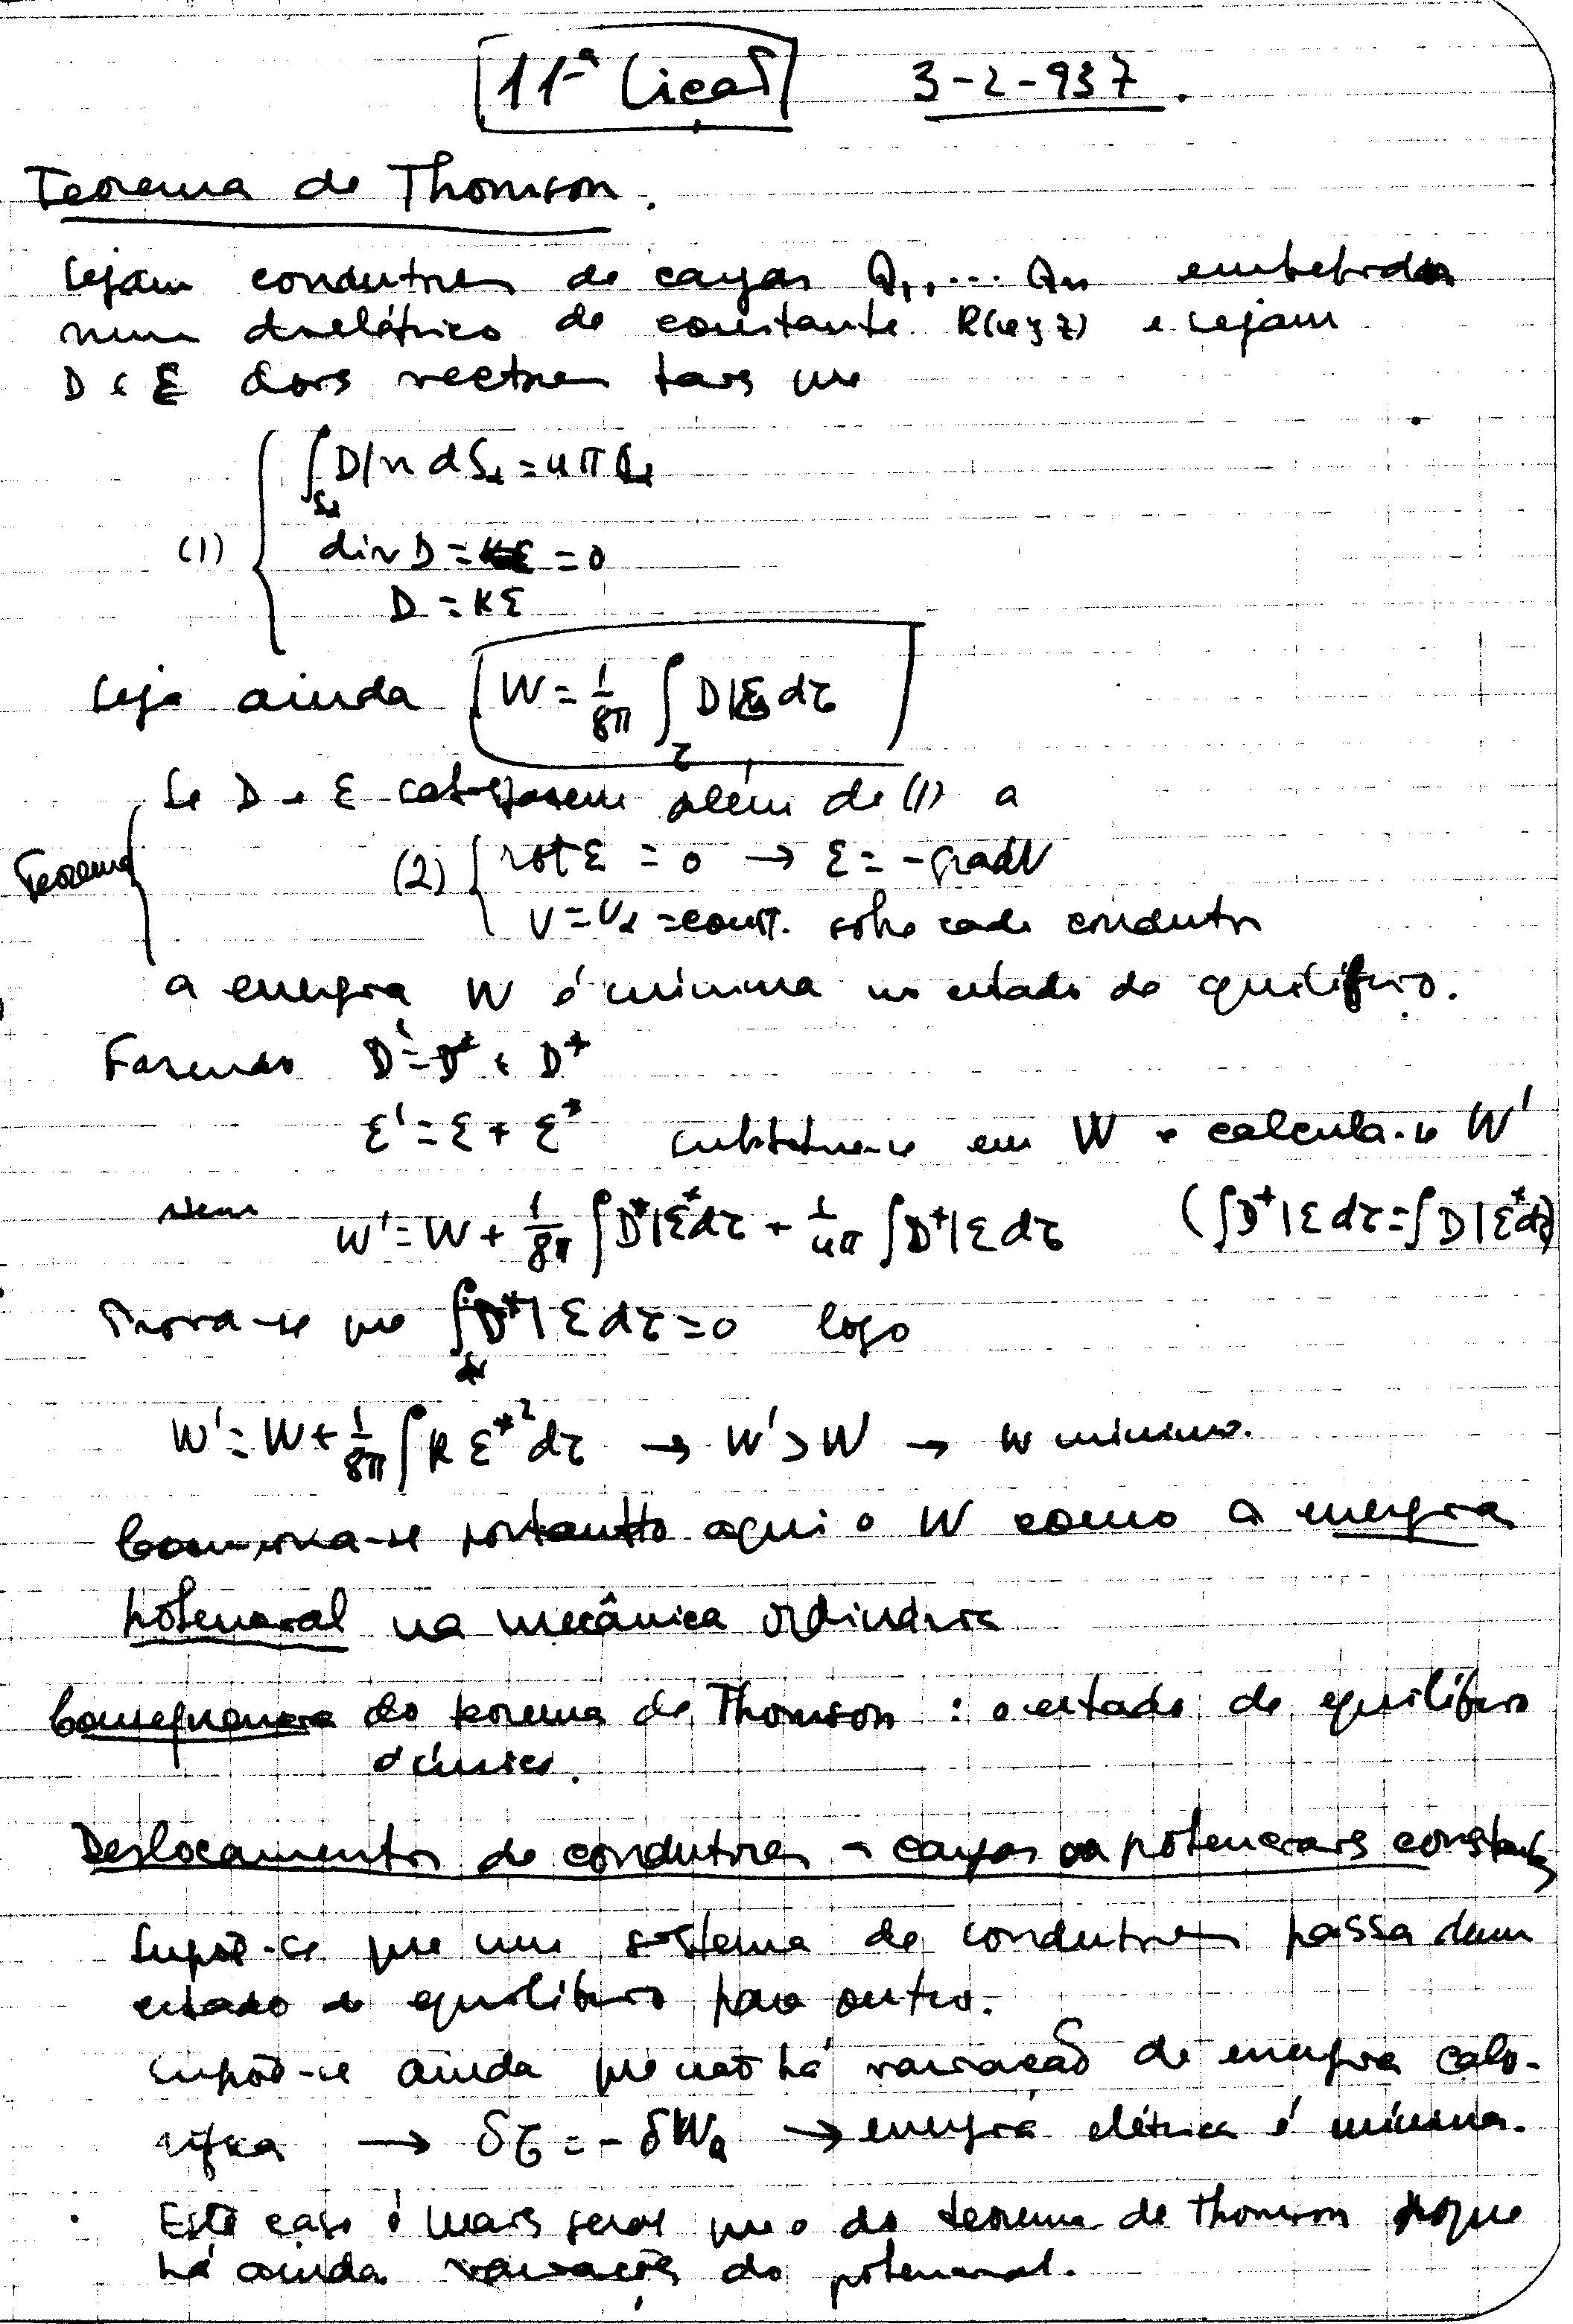 11ª Lição 3-2-937.
Teorema de Thomson.
Sejam condutores de cargas Q₁, ... Qn embebidos
num dielétrico de constante K(x y z) e sejam
D e ℰ dois vectores tais que
∫_{Sα} D|n dSα = 4π Qα
(1) div D = 0
D = Kℰ
Seja ainda W = 1/8π ∫_τ D|ℰ dτ
Se D e ℰ satisfazem além de (1) a
Teorema (2) rot ℰ = 0 → ℰ = -grad V
V = Vα = const. sobre cada condutor
a energia W é mínima no estado de equilíbrio.
Fazendo D' = D + D*
ℰ' = ℰ + ℰ* substitue-se em W e calcula-se W'
W' = W + 1/8π ∫ D*|ℰ* dτ + 1/4π ∫ D*|ℰ dτ (∫ D*|ℰ dτ = ∫ D|ℰ* dτ)
Prova-se que ∫ D*|ℰ dτ = 0 logo
W' = W + 1/8π ∫ K ℰ*² dτ → W' > W → W mínimo.
portanto aqui o W como a energia
potencial na mecânica ordinária
Consequência do teorema de Thomson : o estado de equilíbrio
é único.
Deslocamentos de condutores a cargas ou potenciais constantes
Supõe-se que um sistema de condutores passa dum
estado de equilíbrio para outro.
Supõe-se ainda que não há variação de energia calo-
rífica → δ𝒯 = -δW → energia elétrica é mínima.
Este caso é mais geral que o do teorema de Thomson porque
há ainda variações do potencial.